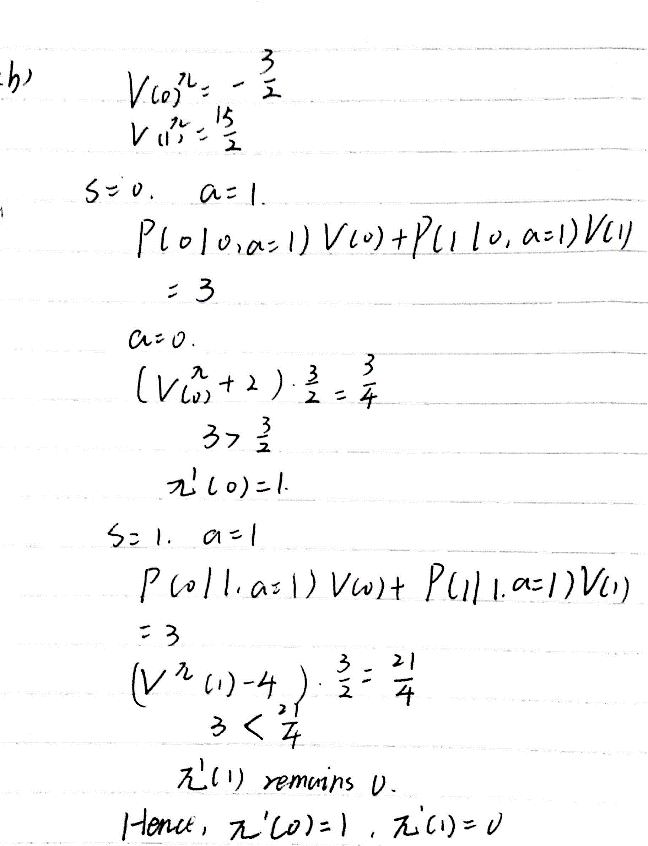 b)
V(0)^π = - 3/2
V(1)^π = 15/2
S=0. a=1.
P(0|0,a=1)V(0)+P(1|0,a=1)V(1)
= 3
a=0.
(V(0)^π + 2)·3/2 = 3/4
3 > 3/2
π'(0)=1.
S=1. a=1
P(0|1.a=1)V(0)+ P(1|1.a=1)V(1)
= 3
(V^π(1)-4)·3/2 = 21/4
3 < 21/4
π'(1) remains 0.
Hence, π'(0)=1, π'(1)=0